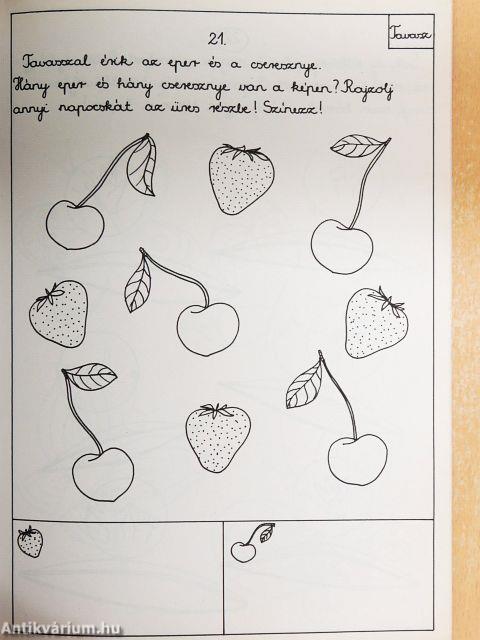 Tavasz
21.
Tavasszal érik az eper és a cseresznye.
Hány eper és hány cseresznye van a képen? Rajzolj
annyi napocskát az üres részbe! Színezz!
Antikvárium.hu